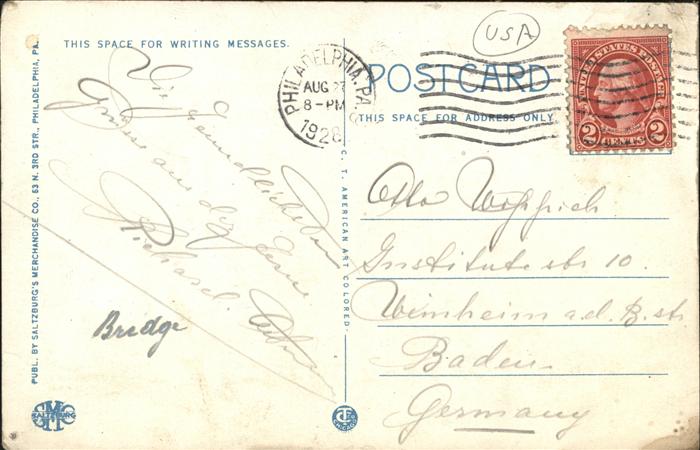 USA
THIS SPACE FOR WRITING MESSAGES.
PHILADELPHIA, PA.
AUG 27
8-PM
1928
POSTCARD
THIS SPACE FOR ADDRESS ONLY
UNITED STATES POSTAGE
2 CENTS 2
Die freundlichsten
Grüsse aus der Ferne
Bridge
Otto
Institutstr 10.
Weinheim a.d. B.str
Baden
Germany
PUBL. BY SALTZBURG'S MERCHANDISE CO., 63 N. 3RD STR., PHILADELPHIA, PA.
C. T. AMERICAN ART COLORED.
SALTZBURG
CHICAGO